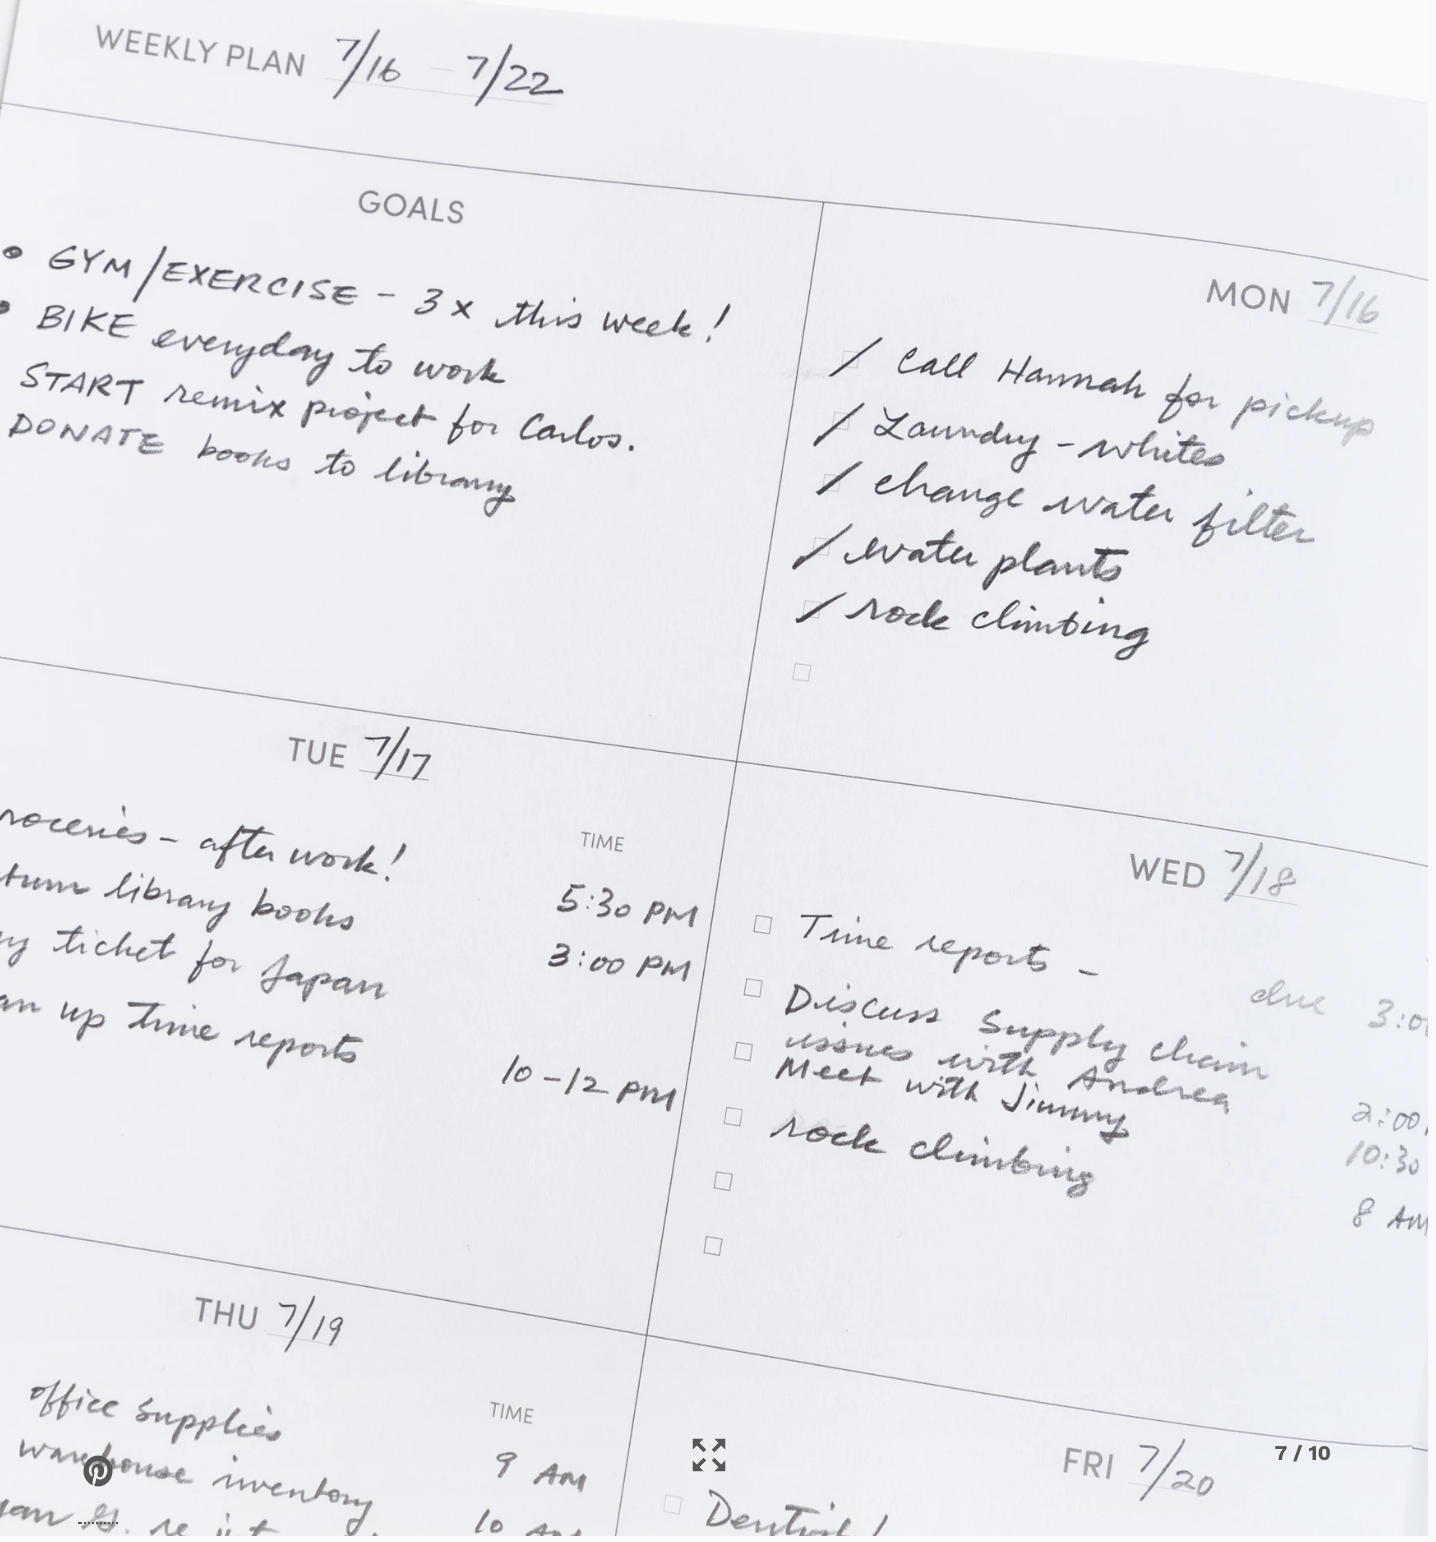 WEEKLY PLAN 7/16 - 7/22
GOALS
• GYM/EXERCISE - 3x this week!
• BIKE everyday to work
START remix project for Carlos.
DONATE books to library
MON 7/16
Call Hannah for pickup
Laundry - whites
change water filter
water plants
rock climbing
TUE 7/17
TIME
roceries - after work!
5:30 PM
turn library books
3:00 PM
ticket for Japan
an up time reports
10-12 PM
WED 7/18
Time reports -
due 3:0
Discuss supply chain
issues with Andrea
2:00
Meet with Jimmy
10:30
rock climbing
8 AM
THU 7/19
TIME
office supplies
9 AM
warehouse inventory
10
FRI 7/20
7 / 10